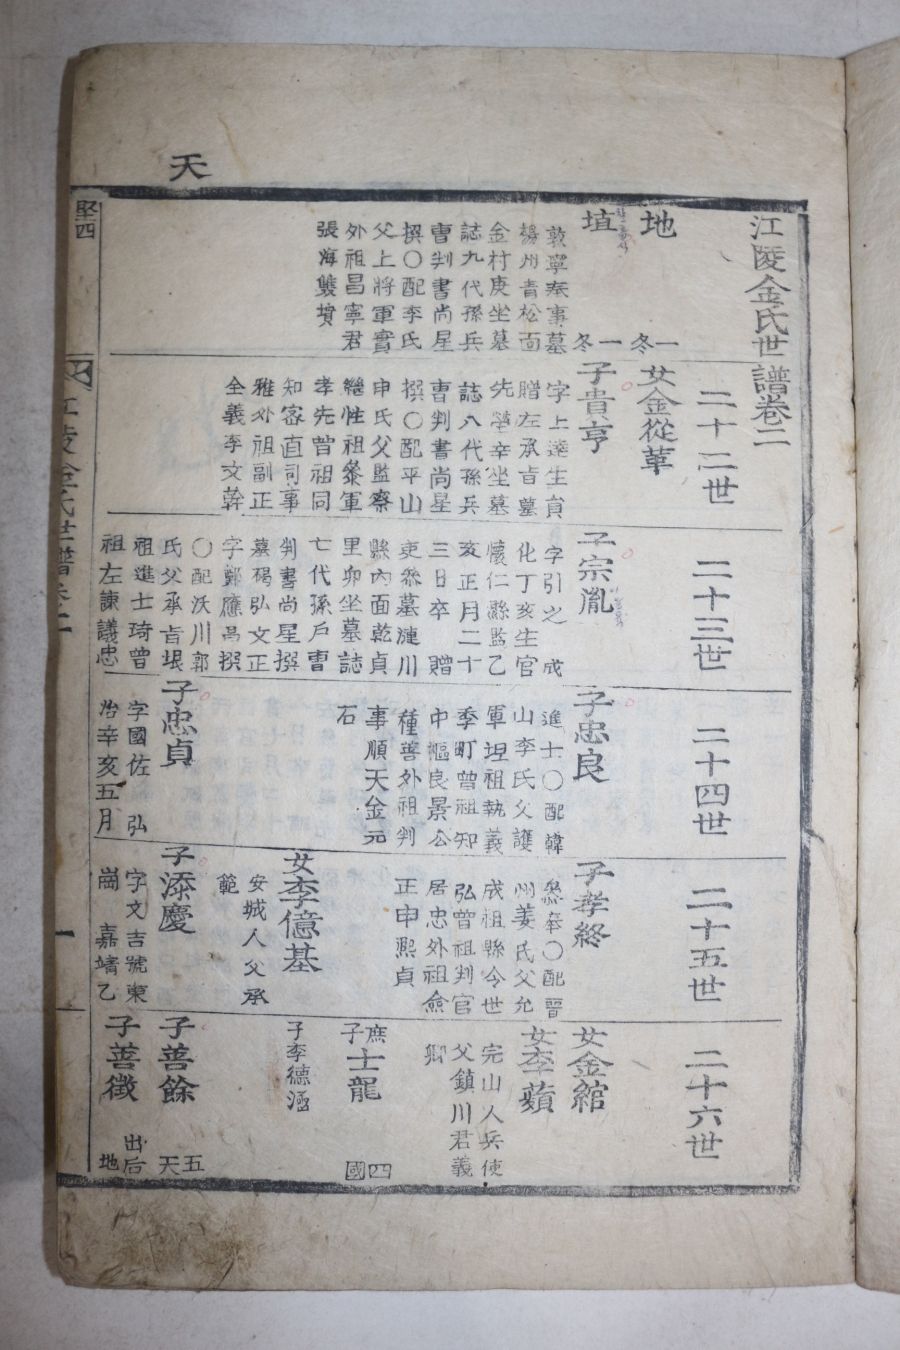 天
江陵金氏世譜卷二
地
一冬
埴
一冬
敦寧奉事墓
楊州青松面
金村庚坐墓
誌九代孫兵
曹判書尚星
撰〇配李氏
父上將軍實
外祖昌寧君
張海雙墳
二十二世
女金從革
子貴亨
字上達生員
贈左承旨墓
先塋辛坐墓
誌八代孫兵
曹判書尚星
撰〇配平山
申氏父監察
繼性祖叅軍
孝先曾祖同
知密直司事
雅外祖副正
全義李文幹
二十三世
子宗胤
字引之 成
化丁亥生官
懷仁縣監乙
亥正月二十
三日卒 贈
吏叅墓漣川
縣內面乾貞
里卯坐墓誌
七代孫戶曹
判書尚星撰
墓碣弘文正
字鄭應昌撰
〇配沃川郭
氏父承旨垠
祖進士琦曾
祖左諫議忠
二十四世
子忠良
進士〇配韓
山李氏父護
軍坦祖執義
季町曾祖知
中樞良景公
種善外祖判
事順天金元
石
子忠貞
字國佐 弘
治辛亥五月
二十五世
子孝終
叅奉〇配晉
州姜氏父允
成祖縣令世
弘曾祖判官
居忠外祖僉
正申熙貞
女李億基
安城人父承
範
子添慶
字文吉號東
崗 嘉靖乙
二十六世
女金綰
女李蘋
完山人兵使
父鎮川君義
卿
庶子士龍
四國
子李德涵
子善餘
五天
子善徵
出后
地
江陵金氏世譜卷二
一